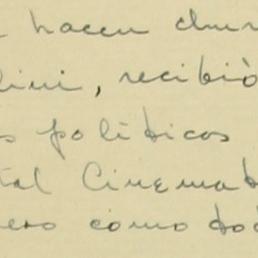 hacen
lini, recibiò
s políticos
tal Cinemat
ero como tod